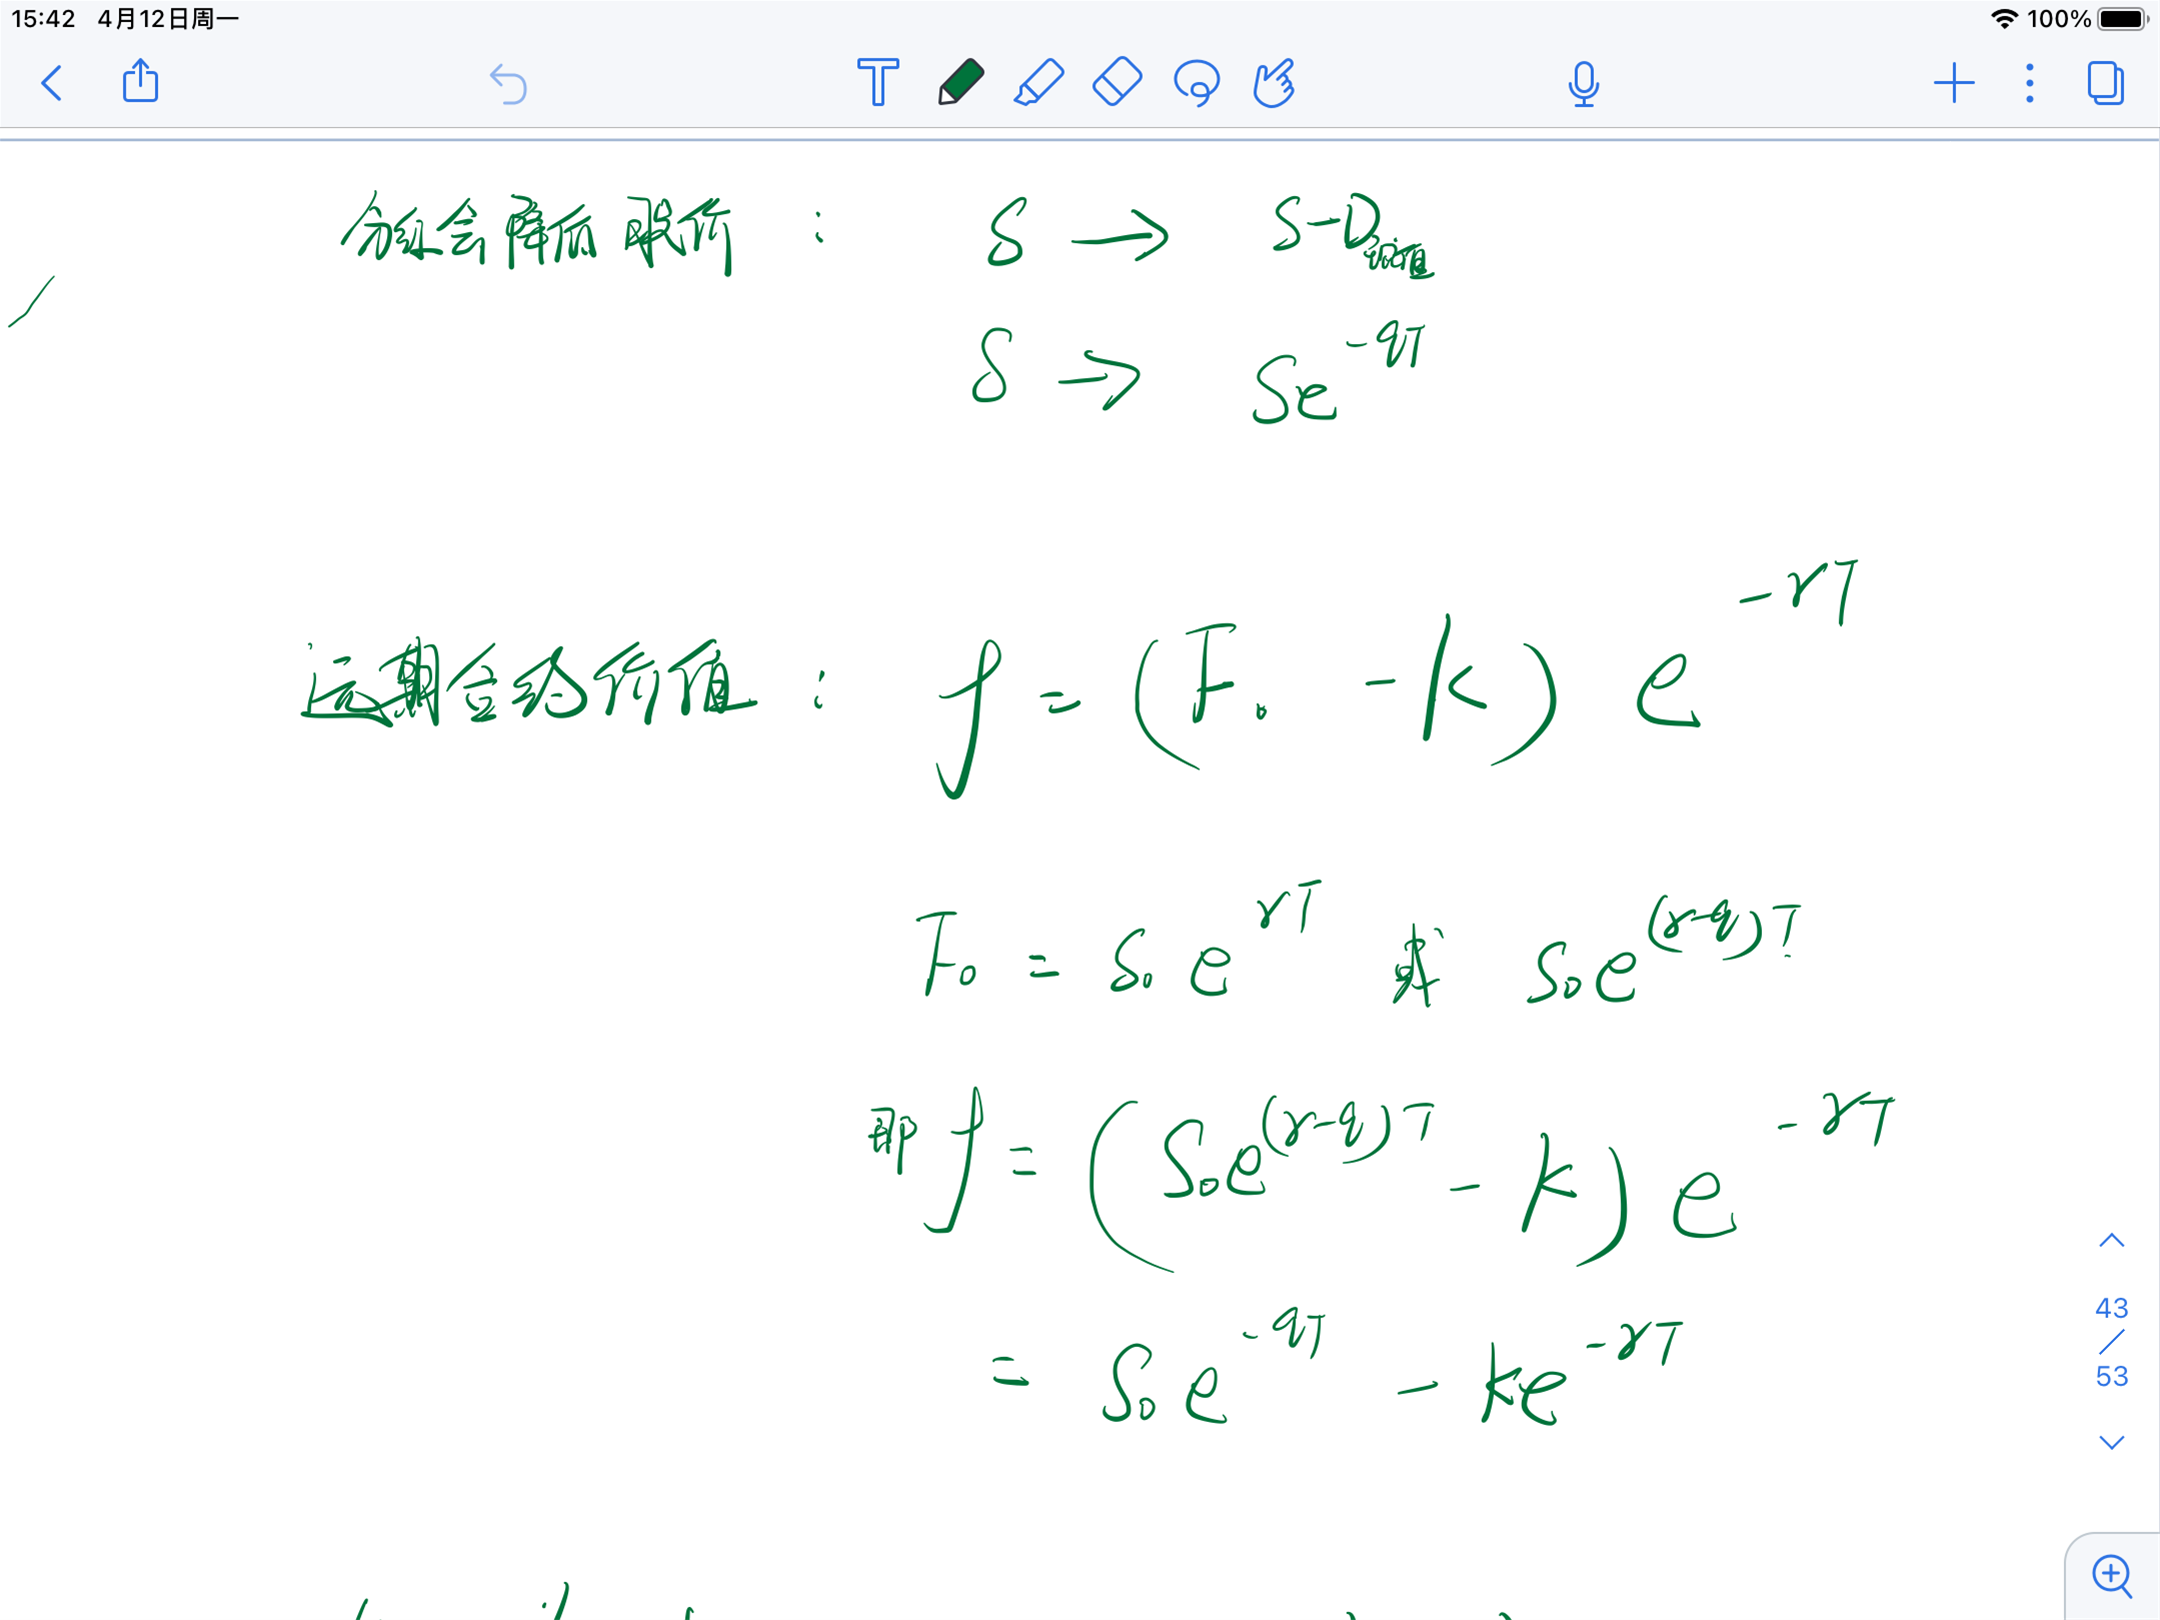 15:42 4月12日周一 100%
分红会降低股价: S → S-D现值
S → Se^-qT
远期合约价值: f = (F₀ - k) e^-rT
F₀ = S₀ e^rT 或 S₀e^(r-q)T
那 f = (S₀e^(r-q)T - k) e^-rT
= S₀e^-qT - ke^-rT
43
/
53